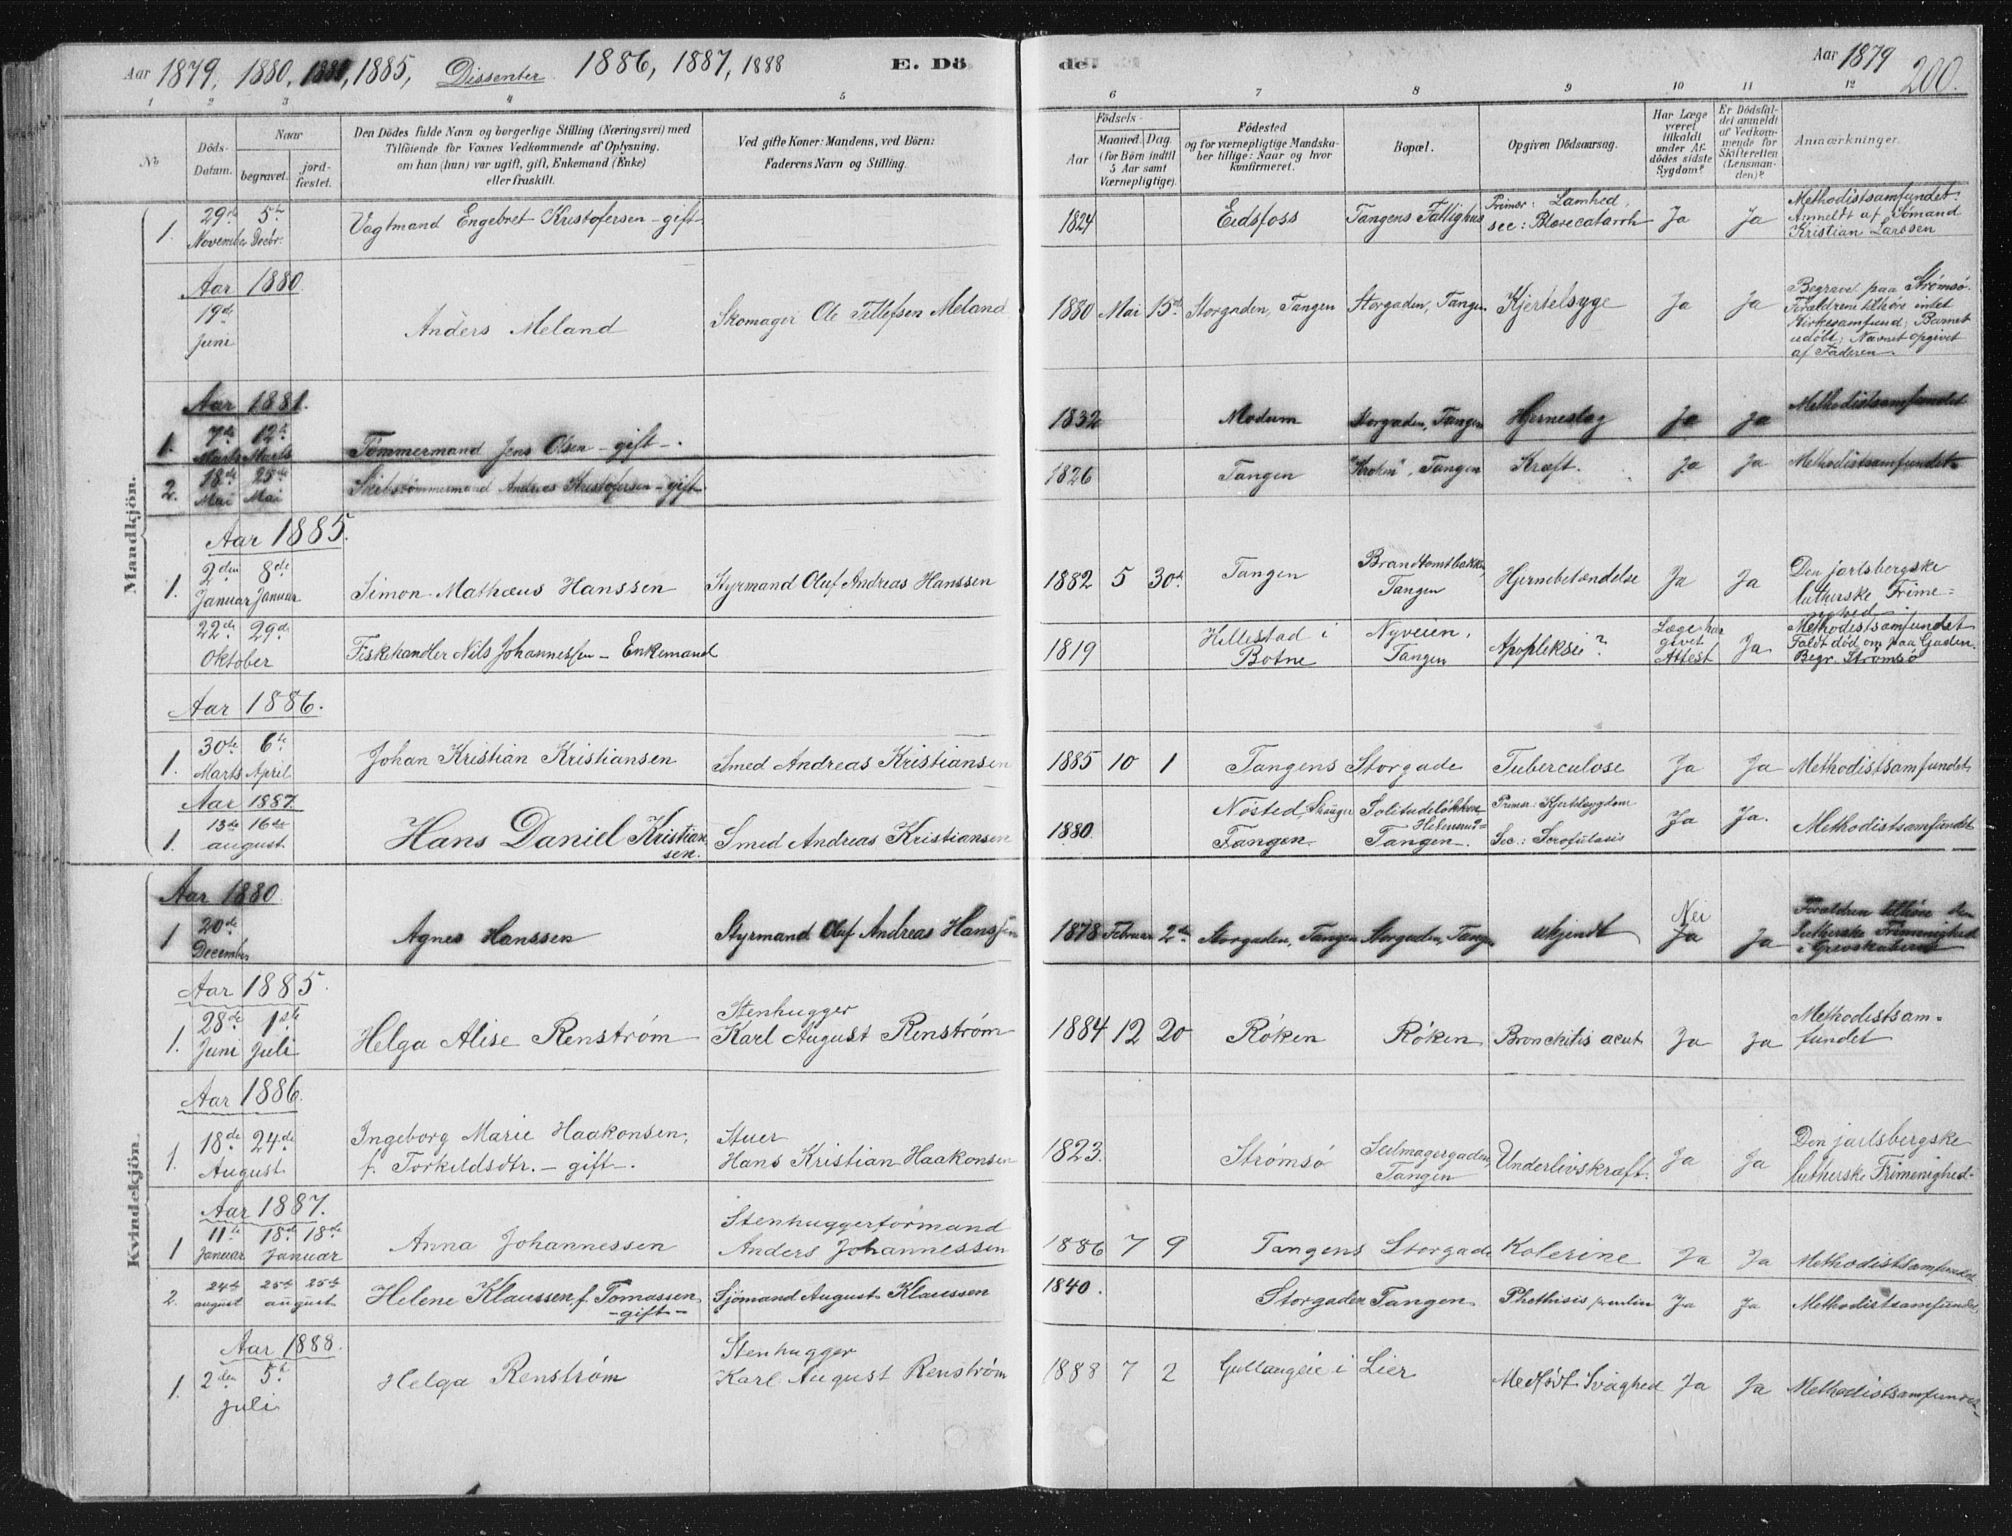 Aar 1879, 1880, 1881, 1885, Dissenter 1886, 1887, 1888 E. Dö de. Aar 1879
200.
1 2 3 4 5 6 7 8 9 10 11 12
No
Döds-Datum.
Naar
begravet.
jord-fæstet.
Den Dödes fulde Navn og borgerlige Stilling (Næringsvei) med
Tilföiende for Voxnes Vedkommende af Oplysning.
om han (hun) var ugift, gift, Enkemand (Enke)
eller fraskilt.
Ved gifte Koner: Mandens, ved Börn:
Faderens Navn og Stilling.
Födsels-
Aar
Maaned. Dag.
(for Börn indtil
5 Aar samt
Værnepligtige).
Födested
og for værnepligtige Mandska-
ber tillige: Naar og hvor
konfirmeret.
Bopæl.
Opgiven Dödsaarsag.
Har Læge
været
tilkaldt
under Af-
dödes sidste
Sygdom?
Er Dödsfal-
det anmeldt
af Vedkom-
mende for
Skifteretten
(Lensman-
den)?
Anmærkninger.
Mandkjön.
1. 29de November 5te Decbr. Vagtmand Engebret Kristofersen - gift 1824 Eidsfoss Tangens Fattighus Primær: Lamhed, sec: Blærecatarrh Ja Ja Methodistsamfundet. Anmeldt af Sömand Kristian Larssen
Aar 1880
19de Juni Anders Meland Skomager Ole Tellefsen Meland 1880 Mai 15de Storgaden, Tangen Storgaden, Tangen Kjertelsyge Ja Ja Begravet paa Strømsø. Forældrene tilhøre intet Kirkesamfund; Barnet udöbt; Navnet opgivet af Faderen.
Aar 1881.
1. 7de Marts 12te Marts Tømmermand Jens Olsen - gift -. 1832 Modum Storgaden, Tangen Hjerneslag Ja Ja Methodistsamfundet
2. 18de Mai 25de Mai Skibstømmermand Andreas Kristofersen - gift 1826 Tangen "Krohn", Tangen Kræft. Ja Ja Methodistsamfundet
Aar 1885.
1. 2den Januar 8de Januar Simon Mathæus Hanssen Styrmand Oluf Andreas Hanssen 1882 5 30te Tangen Brandtomtbakken, Tangen Hjernebetændelse Ja Ja Den jarlsbergske lutherske Frime=nighed.
22de 29de Oktober Fiskehandler Nils Johannessen - Enkemand 1819 Hillestad i Botne Nyveien, Tangen Apopleksi? Læge har givet Attest Ja Methodistsamfundet Faldt död om paa Gaden. Begr. Strømsø
Aar 1886.
1. 30te Marts 6te April Johan Kristian Kristiansen Smed Andreas Kristiansen 1885 10 1 Tangens Storgade Tuberculose Ja Ja Methodistsamfundet
Aar 1887
1. 13de 16de august Hans Daniel Kristiansen. Smed Andreas Kristiansen 1880 Nøsted, Skouger Tangen Solitudeløkken, Tangen. Primær: Kjertelsygdom Sec.: Scrofulosis Ja Ja. Methodistsamfundet
Kvindekjön.
Aar 1880
1 20de December Agnes Hanssen Styrmand Oluf Andreas Hanssen 1878 Februar 2den Storgaden, Tangen Storgaden, Tangen ukjendt Nei Ja Ja Forældrene tilhøre den lutherske Frimenighed i Grevskaberne
Aar 1885.
1. 28de Juni 1ste Juli Helga Alise Renstrøm Stenhugger Karl August Renstrøm 1884 12 20 Røken Røken Bronchitis acut Ja Ja Methodistsam-fundet
Aar 1886.
1. 18de 24de August Ingeborg Marie Haakonsen, f. Torkildsdtr. - gift -. Stuer Hans Kristian Haakonsen 1823. Strømsø Seilmagergaden, Tangen Underlivskræft. Ja Ja Den jarlsbergske lutherske Frimenighed.
Aar 1887.
1 11te Januar 18de 18de Januar Anna Johannessen Stenhuggerformand Anders Johannessen 1886 7 9 Tangens Storgade Kolerine Ja Ja Methodistsamfundet
2. 24de august 25de 25de august Helene Klaussen f. Tomassen - gift - Sjömand August Klaussen 1840. Storgaden Tangen Phethisis Ja Ja Methodistsamfundet
Aar 1888.
1. 2den 5te Juli Helga Renstrøm Stenhugger Karl August Renstrøm 1888 7 2 Gullaugeie i Lier Medfødt Svaghed Ja Ja Methodistsamfundet